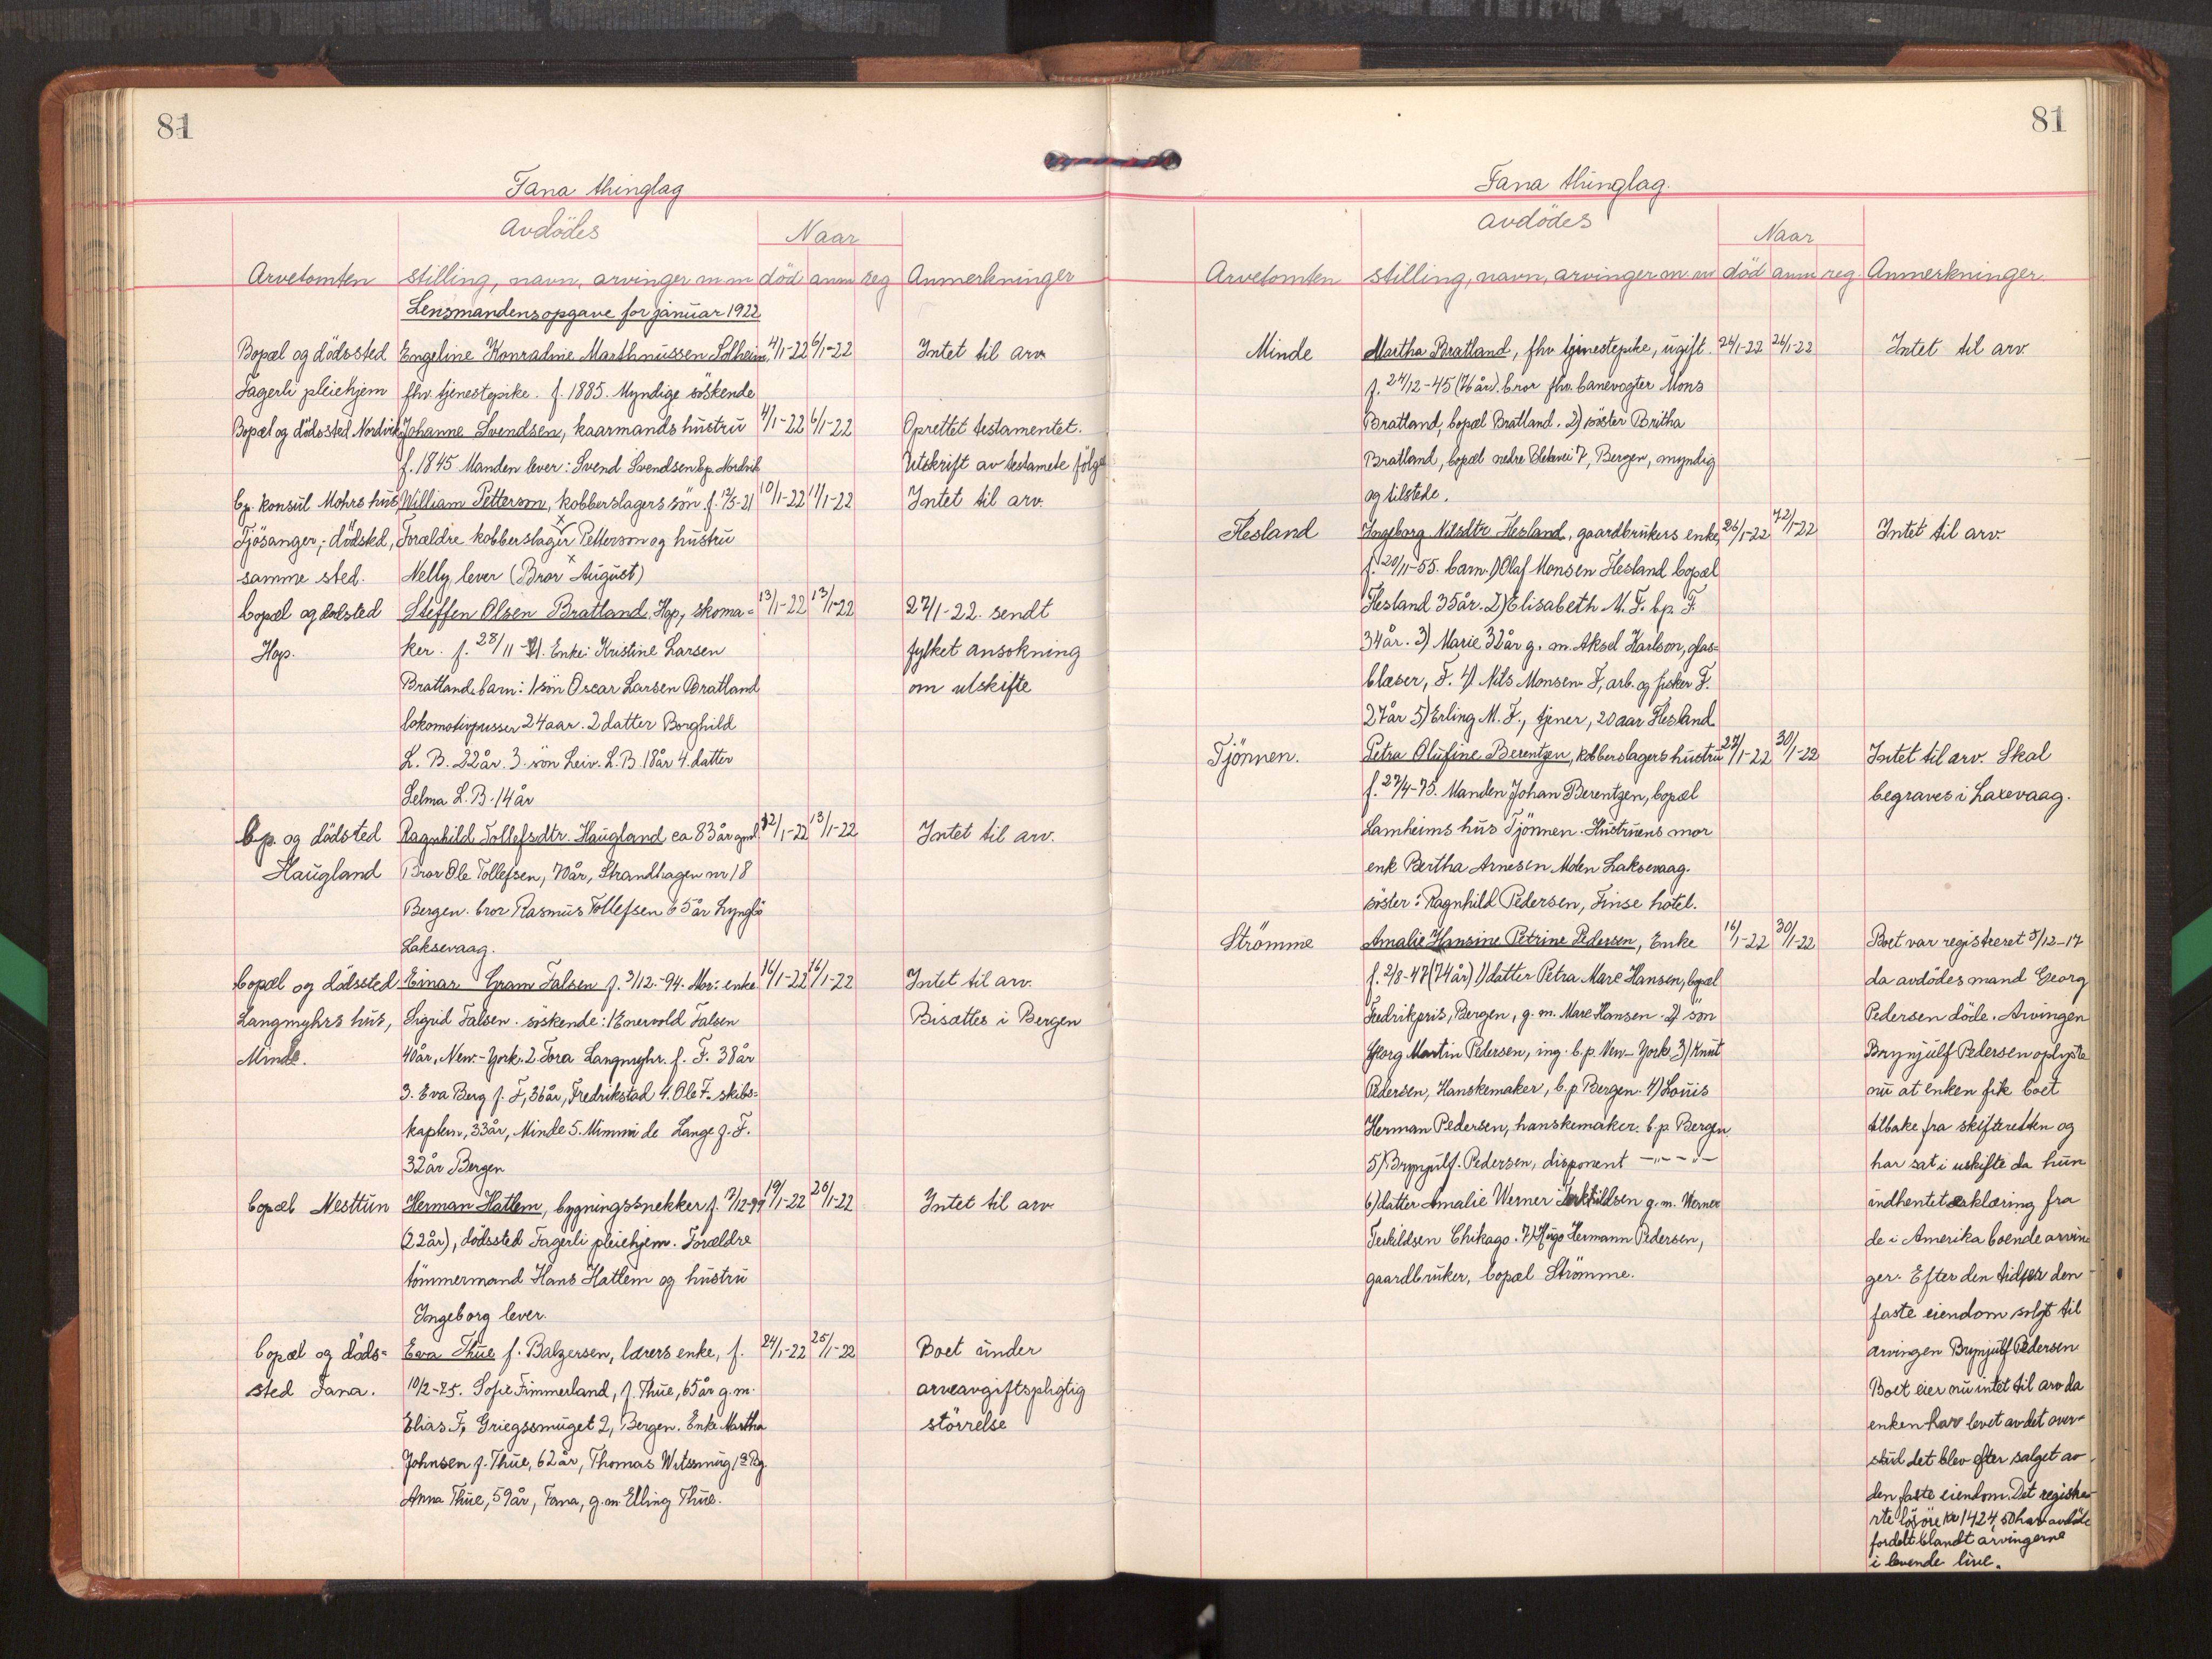 81
Fana thinglag
Avdödes
Naar
Arvetomten stilling, navn, arvinger m m död anm reg Anmerkninger
Lensmandens opgave for januar 1922
Bopæl og dödssted Engeline Konradine Marthnussen Solheim, 4/1-22 6/1-22 Intet til arv
Fagerli pleiehjem fhv. tjenestepike. f. 1885. Myndige söskende
Bopæl og dödssted Nordvik Johanne Svendsen, kaarmands hustru 4/1-22 6/1-22 Oprettet testamentet.
f. 1845 Manden lever: Svend Svendsen bp. Nordvik Utskrift av testamete fölge
bp. konsul Mohrs hus, William Petterson, kobberslagers sön f. 12/5-21 10/1-22 11/1-22 Intet til arv.
Tjösanger, dödsted, Forældre kobberslager Petterson og hustru
samme sted. Nelly lever (Bror August)
bopæl og dödsted Steffen Olsen Bratland, Hop, skoma= 13/1-22 13/1-22 27/1-22. sendt
Hop. ker. f. 28/11-71. Enke: Kristine Larsen fylket ansökning
Bratland. barn: 1 sön Oscar Larsen Bratland om utskifte
lokomotivpusser 24 aar. 2 datter Borghild
L. B. 22 år. 3. sön Leiv. L. B. 18 år 4. datter
Selma L. B. 14 år
b.p. og dödsted Ragnhild Tollefsdtr. Haugland ca 83 år gml. 12/1-22 13/1-22 Intet til arv.
Haugland Bror Ole Tollefsen, 70 år, Strandhagen nr 18
Bergen. bror Rasmus Tollefsen 65 år Lyngbö
Laksevaag.
bopæl og dödssted Einar Gram Falsen f. 3/12-94. Mor: enke 16/1-22 16/1-22 Intet til arv.
Langmyhrs hus, Sigrid Falsen. söskende: 1 Enevold Falsen Bisættes i Bergen
Minde. 40 år, New-York. 2 Tora Langmyhr. f. F. 38 år
3. Eva Berg f. F, 36 år, Fredrikstad 4. Ole F. skibs=
kaptein, 33 år, Minde 5. Mimmi de Lange f. F.
32 år Bergen
bopæl Nesttun Herman Hatlem, bygningssnekker f. 7/12-99 19/1-22 20/1-22 Intet til arv
(22 år), dödssted Fagerli pleiehjem. Forældre
tömmermand Hans Hatlem og hustru
Ingeborg lever.
bopæl og döds= Eva Thue f. Balzersen, lærers enke, f. 24/1-22 25/1-22 Boet under
sted Fana. 10/2-25. Sofie Fimmerland, f. Thue, 65 år g. m. arveavgiftspligtig
Elias F, Griegssmuget 2, Bergen. Enke Martha störrelse
Johnsen f. Thue, 62 år, Thomas Witssmug 1a Bg.
Anna Thue, 59 år, Fana, g. m. Elling Thue.
81
Fana thinglag.
avdödes
Naar
Arvetomten stilling, navn, arvinger m. m död anm reg. Anmerkninger.
Minde Martha Bratland, fhv tjenestepike, ugift. 24/1-22 26/1-22 Intet til arv.
f. 24/12-45 (76 år). bror fhv. banevogter Mons
Bratland, bopæl Bratland. 2) söster Britha
Bratland, bopæl nedre Blekevei 7, Bergen, myndig
og tilstede.
Flesland Ingeborg Nilsdtr Flesland, gaardbrukers enke, 26/1-22 /1-22 Intet til arv.
f. 20/11-55. barn. 1) Olaf Monsen Flesland bopæl
Flesland 35 år. 2) Elisabeth M. F. bp. F.
34 år. 3) Marie 32 år g. m. Aksel Karlson, glas=
blæser, F. 4) Nils Monsen F, arb. og fisker F.
27 år 5) Erling M. F., tjener, 20 aar Flesland
Tjönnen. Petra Olufine Berentzen, kobberslagers hustru 27/1-22 30/1-22 Intet til arv. Skal
f. 27/4-75. Manden Johan Berentzen, bopæl begraves i Laxevaag.
Lamheims hus Tjönnen. Hustruens mor
enk Bertha Arnesen Molen Laksevaag.
söster: Ragnhild Pedersen, Finse hotel.
Strömme Amalie Hansine Petrine Pedersen, Enke 16/1-22 30/1-22 Boet var registreret 5/12-17
f. 2/8-47 (74 år) 1) datter Petra Mare Hansen, bopæl da avdödes mand Georg
Fredrikpris, Bergen, g. m. Mare Hansen. 2) sön Pedersen döde. Arvingen
Georg Martin Pedersen, ing. b.p. New-York. 3) Knut Brynjulf Pedersen oplyste
Pedersen, Hanskemaker, b. p. Bergen. 4) Louis nu at enken fik boet
Herman Pedersen, hanskemaker. b. p. Bergen. tilbake fra skifteretten og
5) Brynjulf. Pedersen, disponent —"— —"— har sat i uskifte da hun
6) datter Amalie Werner Terkildsen g. m. Werner indhentet erklæring fra
Terkildsen Chikago. 7) Hugo Hermann Pedersen, de i Amerika boende arvin
gaardbruker, bopæl Strömme. ger. Efter den tid er den
faste eiendom solgt til
arvingen Brynjulf Pedersen
Boet eier nu intet til arv da
enken har levet av det over-
skud det blev efter salget av
den faste eiendom. Det registre-
rte lösöre kr 1424,50 har avdöde
fordelt blandt arvingerne
i levende live.